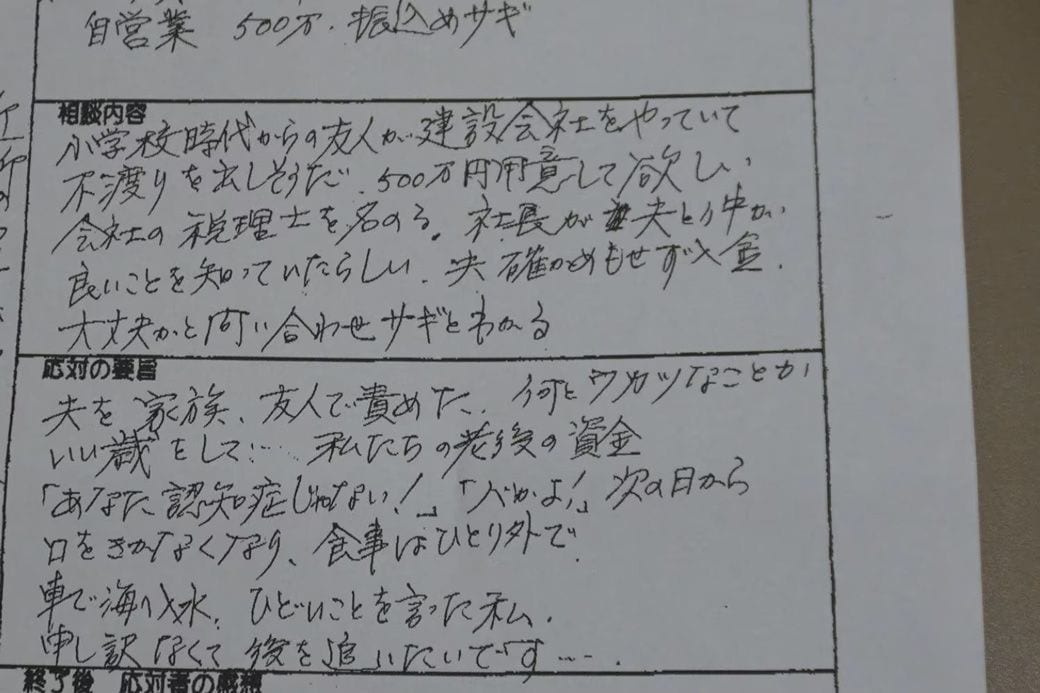 自営業 500万. 振込めサギ
相談内容
小学校時代からの友人が建設会社をやっていて
不渡りを出しそうだ. 500万円用意して欲しい
会社の税理士を名のる。社長が夫と仲が
良いことを知っていたらしい. 夫確かめもせず入金.
大丈夫かと問い合わせサギとわかる
応対の要旨
夫を家族、友人で責めた. 何とウカツなことか
いい歳をして… 私たちの老後の資金
「あなた認知症じゃない!」「バカよ!」次の日から
口をきかなくなり、食事はひとり外で.
車で海へ入水. ひどいことを言った私.
申し訳なくて後を追いたいです…….
終了後 応対者の感想